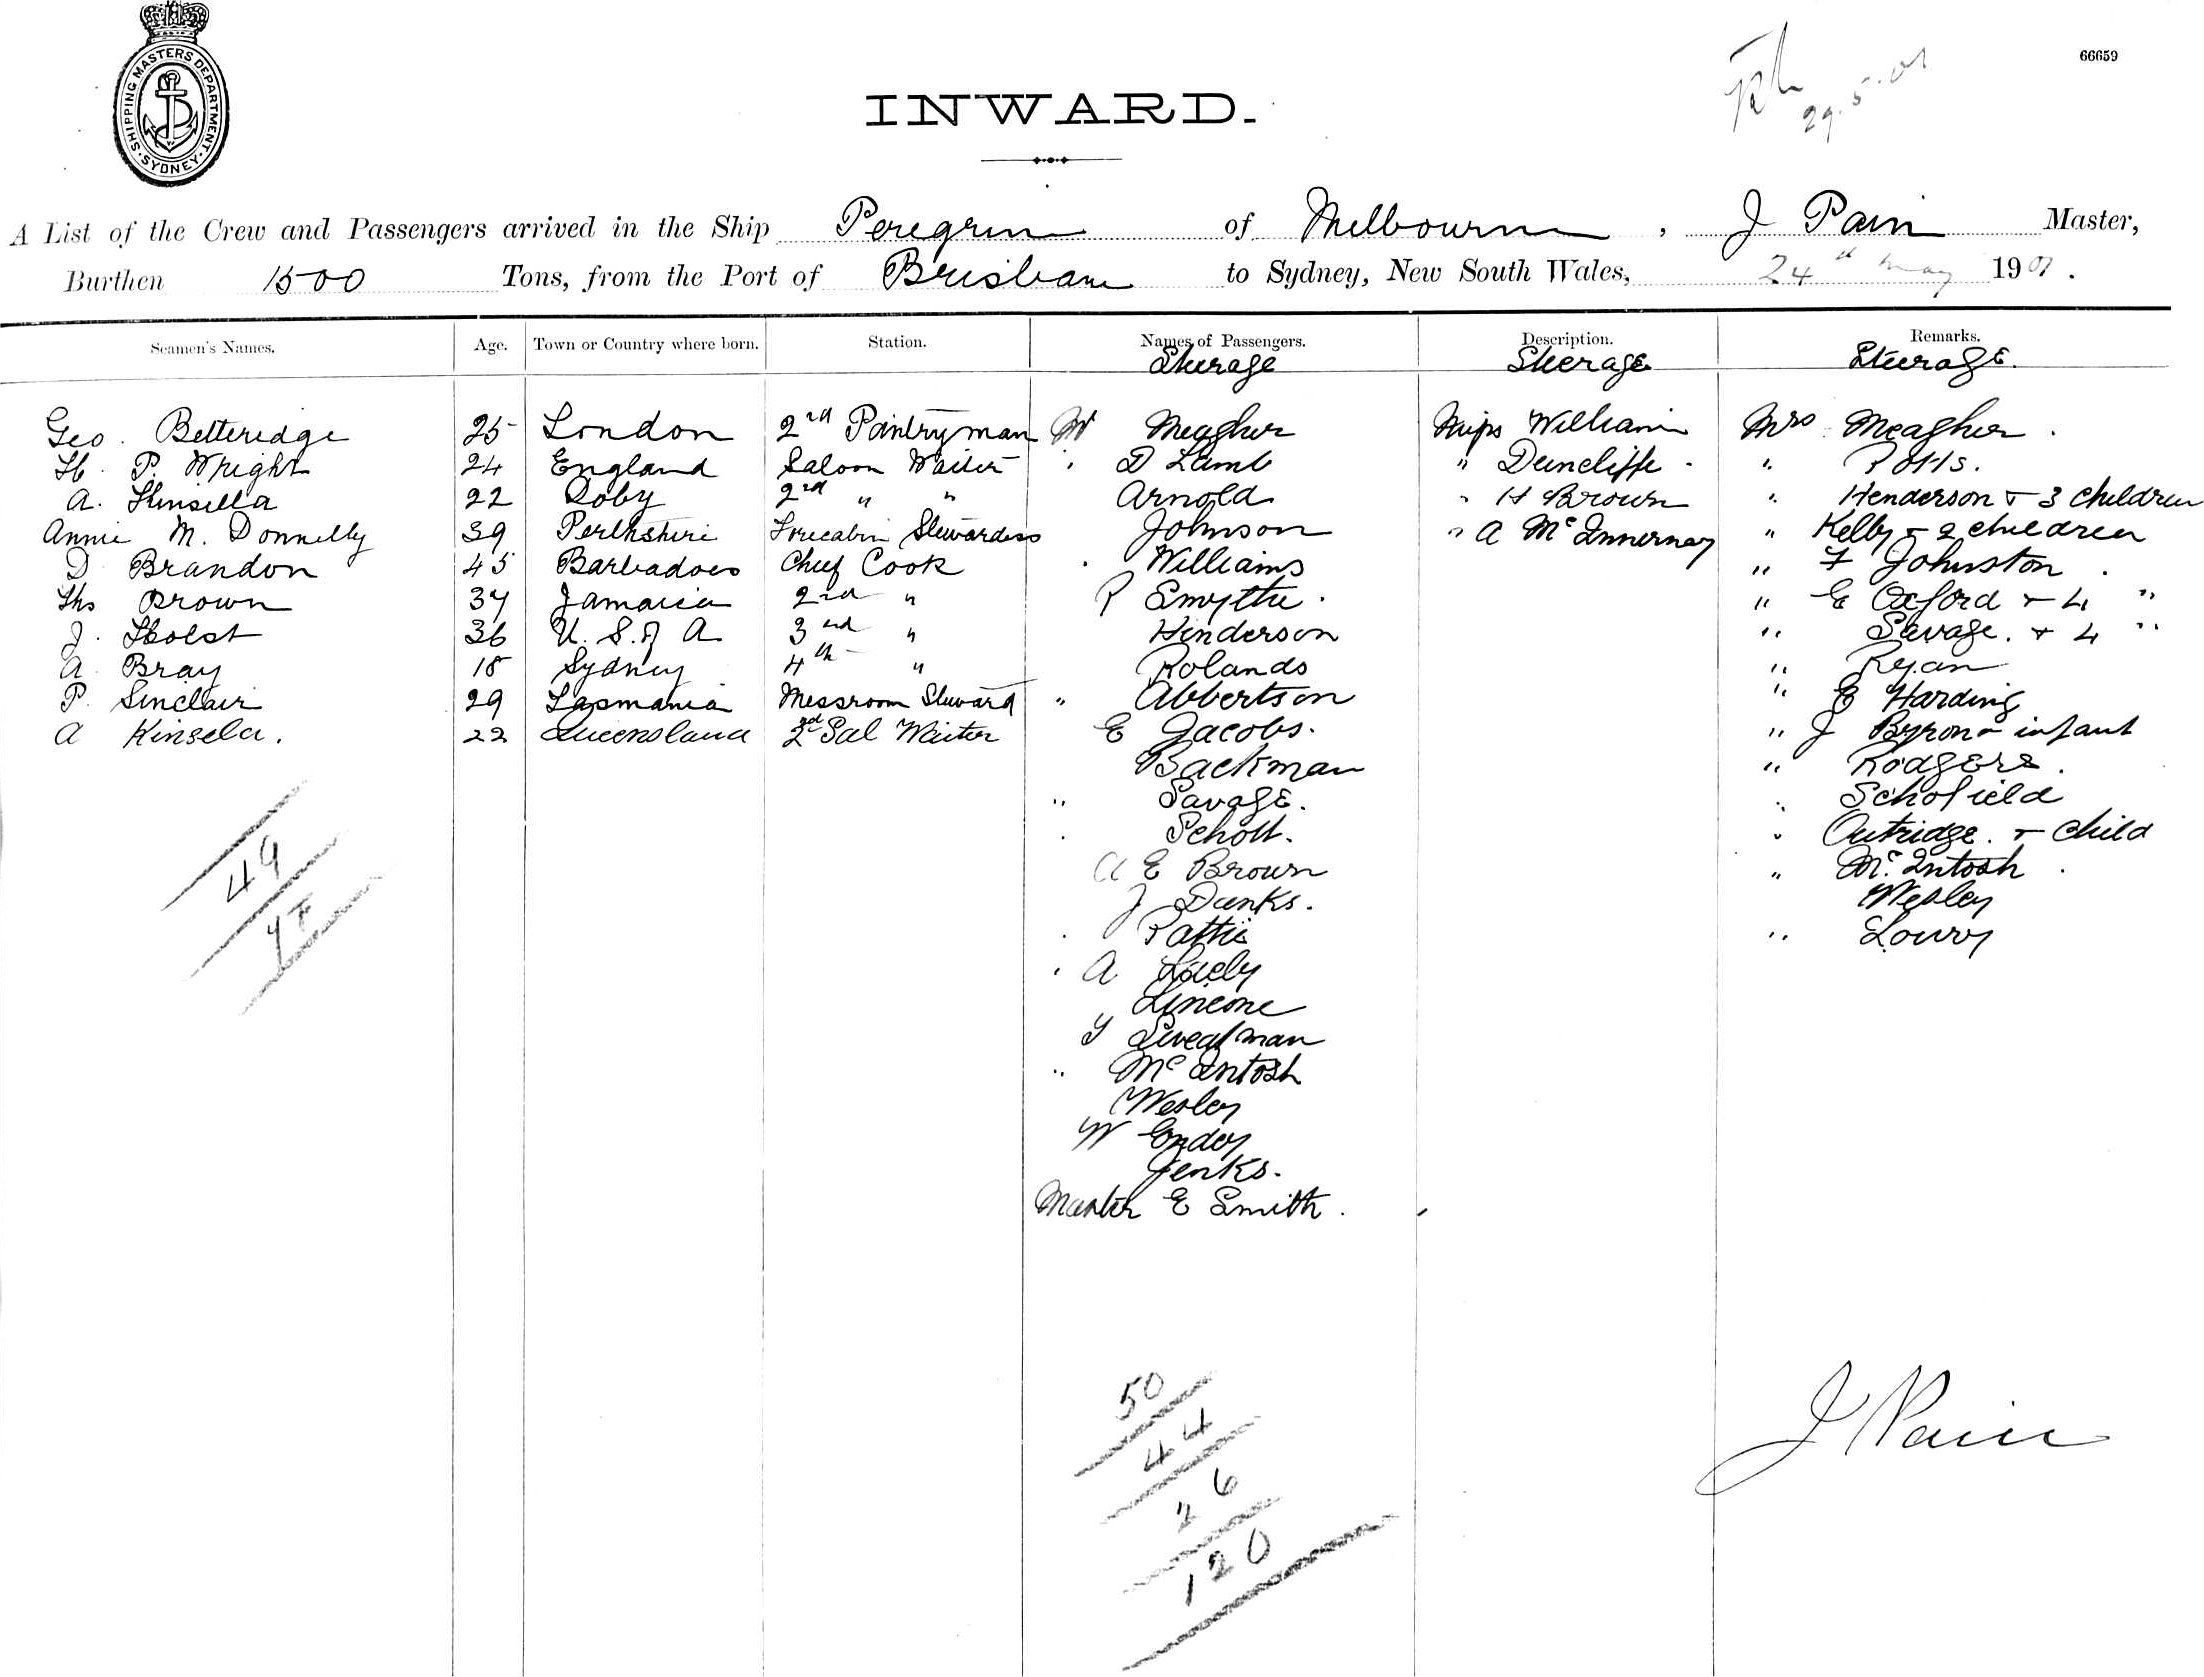 SHIPPING MASTERS DEPARTMENT
SYDNEY
66659
29.5.01
INWARD.
A List of the Crew and Passengers arrived in the Ship Peregrine of Melbourne, J Pain Master,
Burthen 1500 Tons, from the Port of Brisbane to Sydney, New South Wales, 24th May 1901.
Seamen's Names. Age. Town or Country where born. Station. Names of Passengers. Description. Remarks.
Steerage Steerage Steerage.
Geo. Betteridge 25 London 2nd Pantryman Mr Meagher Miss William Mrs Meagher.
H. P. Wright 24 England Saloon Waiter " D Lamb " Duncliffe " Potts.
A. Kinsella 22 Roby 2nd " " Arnold " H Brown " Henderson + 3 children
Annie M. Donnelly 39 Perthshire Forecabin Stewardess Johnson " A McInnerney " Kelly + 2 children
D Brandon 45 Barbadoes Chief Cook " Williams " F Johnston.
Ths Brown 37 Jamaica 2nd " P Smythe. " E Oxford + 4 "
J. Holst 36 U. S. of A 3rd " Henderson " Savage. + 4 "
A Bray 18 Sydney 4th " Rolands " Ryan
P. Sinclair 29 Tasmania Messroom Steward " Abbertson " E Harding
A Kinsela. 22 Queensland 2nd Sal Waiter E Jacobs. " J Byron + infant
Backman " Rodgers.
" Savage. " Schofield
" Scholl. " Outridge. + child
49
A E Brown " McIntosh.
J Danks. Wesley
" Pattie " Lowry
" A Lacly
Lincone
Y Sweatman
" McIntosh
Wesley
W Endoy
Jenks.
Master E Smith.
50
44
26
120
J Pain